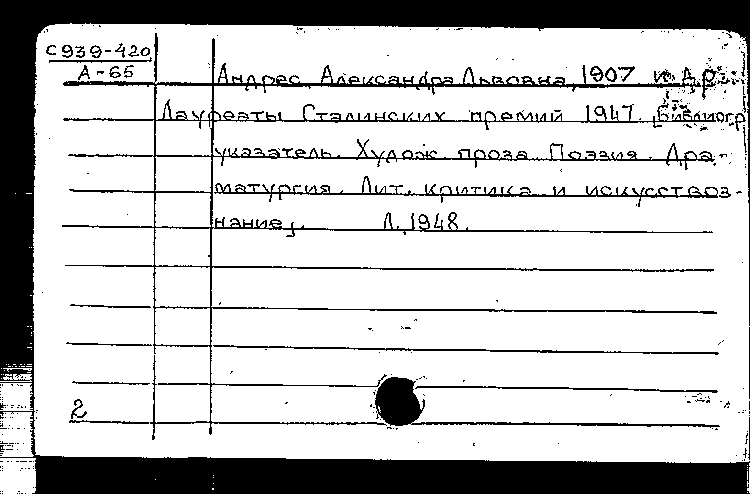 С939-420
А-65
Андрес Александра Львовна, 1907 и др.
Лауреаты Сталинских премий 1947. [Библиогр.
указатель. Худож. проза. Поэзия. Дра-
матургия. Лит. критика и искусствоз-
нание]. Л., 1948.
2